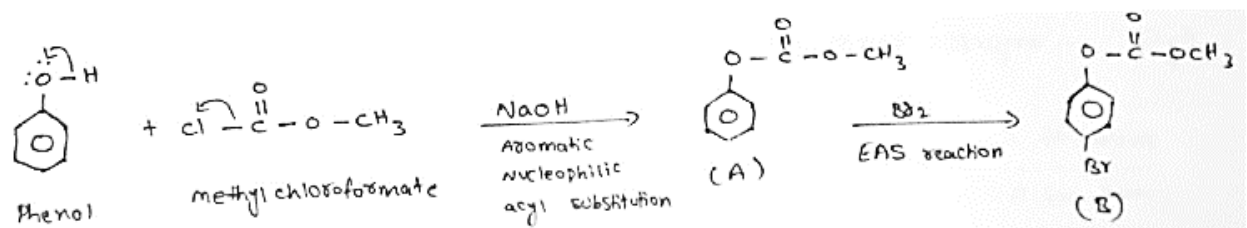 :O – H
Phenol
+
Cl – C – O – CH3
O
methyl chloroformate
NaOH
Aromatic
Nucleophilic
acyl substitution
O
O – C – O – CH3
(A)
Br2
EAS reaction
O
O – C – OCH3
Br
(B)